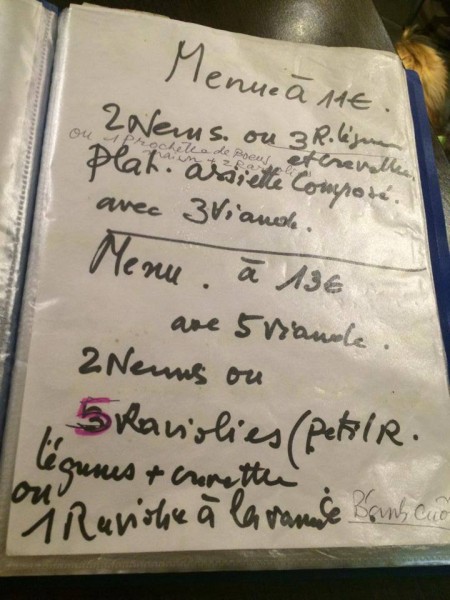 Menu à 11€.
2 Nems. ou 3 R. légumes
et crevettes.
ou 1 brochette de Boeuf
maison + 2 Ravioli
Plat. assiette Composé.
avec 3 Viande.
Menu. à 13€
ave 5 Viande.
2 Nems ou
5 Raviolies (petit R.
légumes + crevette
ou
1 Raviolie à la viande Bánh Cuố